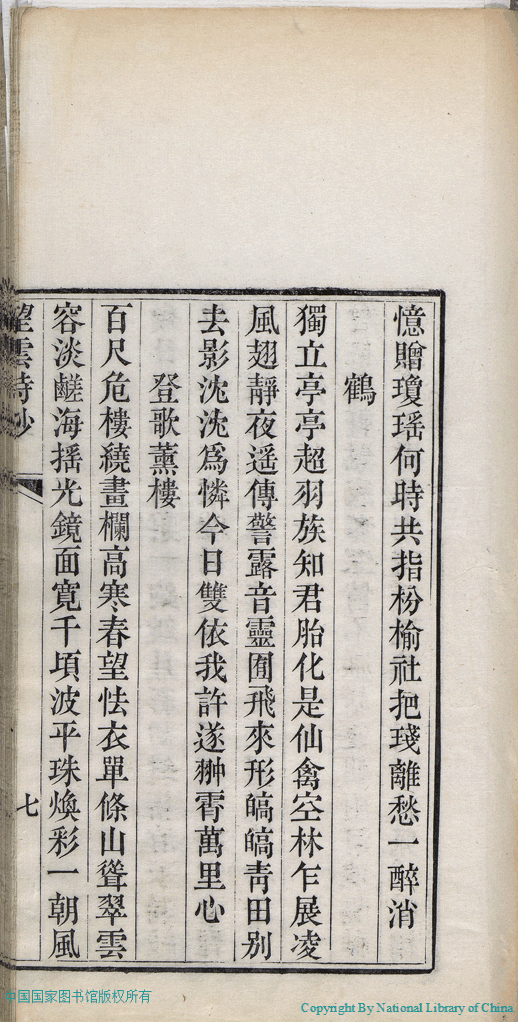 憶贈瓊瑤何時共指枌榆社把琖離愁一醉消
鶴
獨立亭亭超羽族知君胎化是仙禽空林乍展凌
風翅靜夜遥傳警露音靈囿飛來形皜皜靑田别
去影沈沈爲憐今日雙依我許遂翀霄萬里心
登歌薰樓
百尺危樓繞畫欄高寒春望怯衣單條山聳翠雲
容淡鹺海揺光鏡面寛千頃波平珠煥彩一朝風
望雲詩鈔
七
中国国家图书馆版权所有
Copyright By National Library of China.